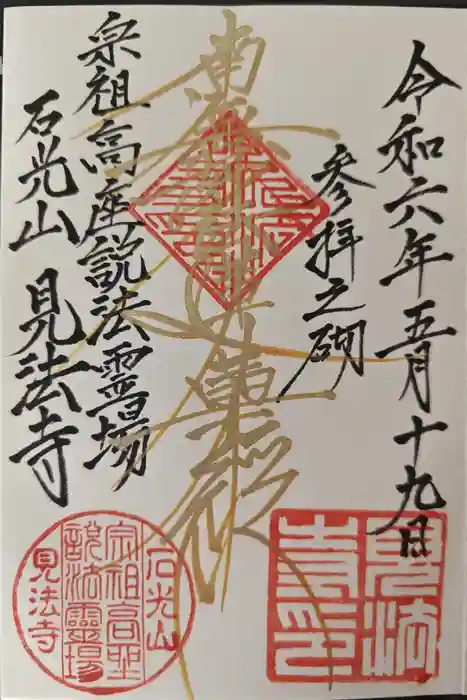 令和六年五月十九日
参拝之砌
南無妙法蓮華経
宗祖高座説法霊場
石光山 見法寺
石光山
宗祖高座
説法靈場
見法寺
見法
寺印